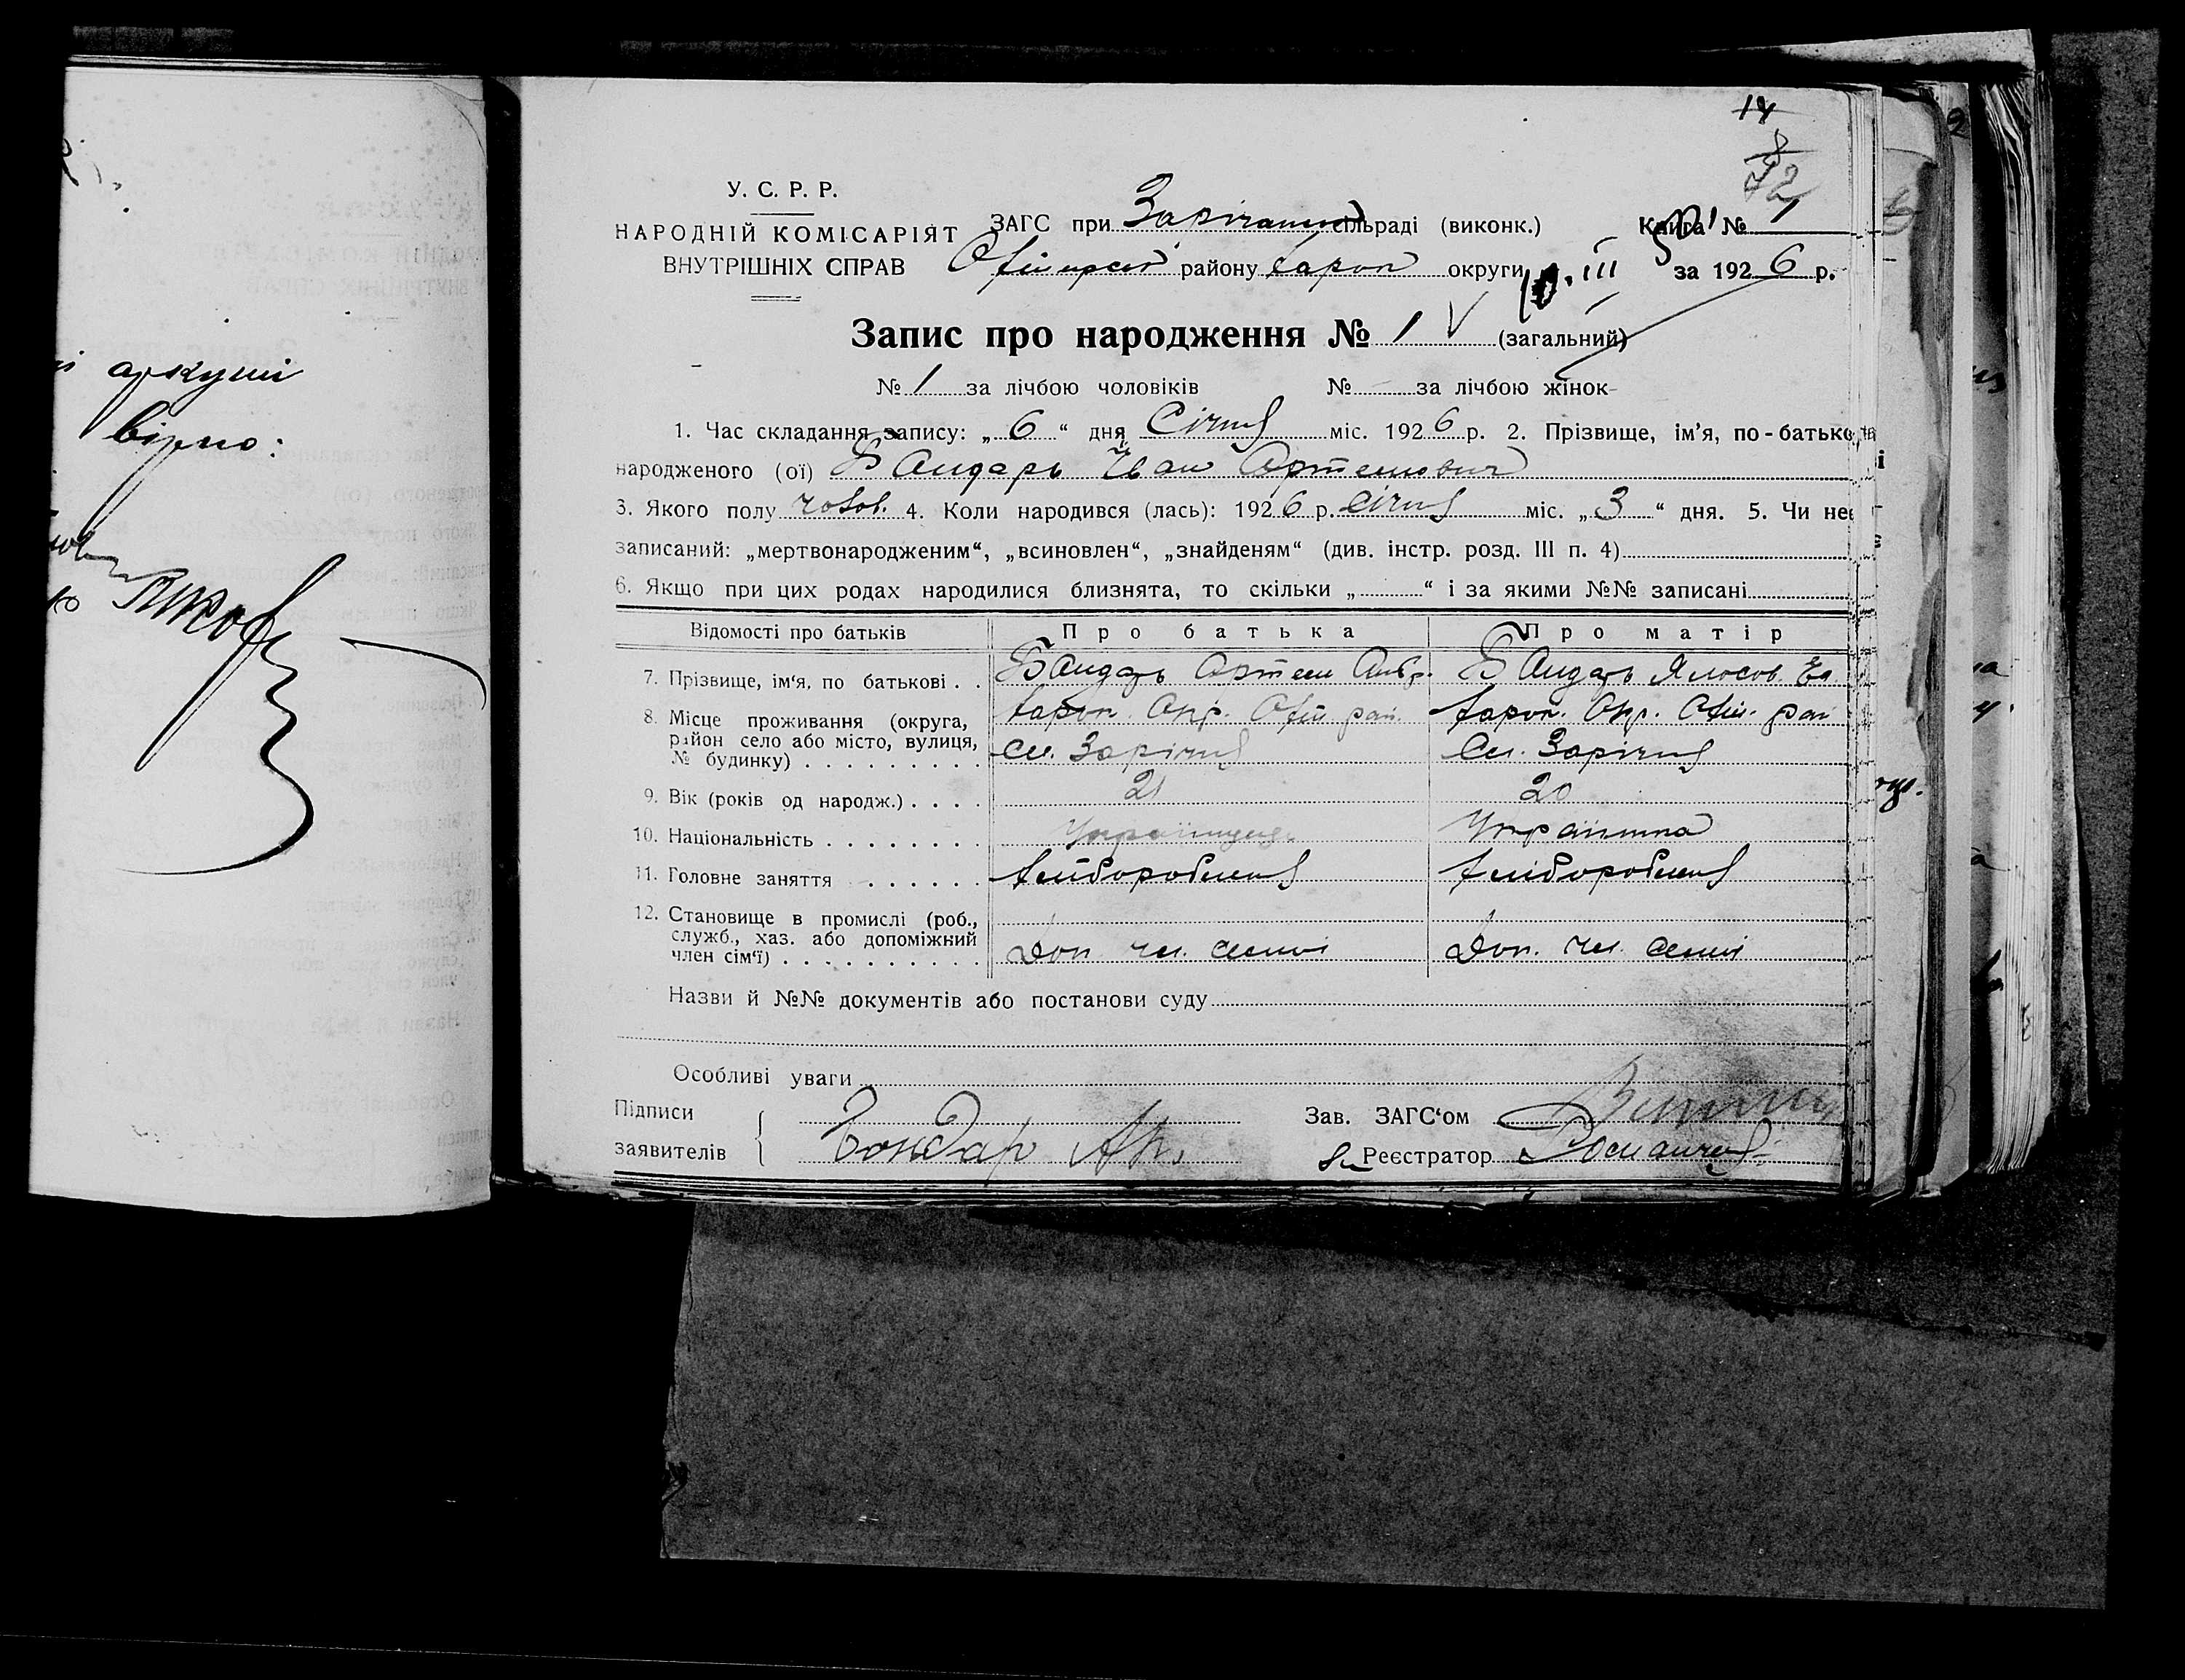 аркуші
вірно:
14
У. С. Р. Р.
НАРОДНІЙ КОМІСАРІЯТ
ВНУТРІШНІХ СПРАВ
ЗАГС при сільраді (виконк.) Книга № 1
району округи за 1926 р.
10. III
Запис про народження № 1 V (загальний)
№ 1 за лічбою чоловіків № за лічбою жінок
1. Час складання запису: „6“ дня Січня міс. 1926 р. 2. Прізвище, ім'я, по-батькові
народженого (ої) Бандарь Іван Артемович
3. Якого полу чолов. 4. Коли народився (лась): 1926 р. Січня міс. „3“ дня. 5. Чи не
записаний: „мертвонародженим“, „всиновлен“, „знайденям“ (див. інстр. розд. III п. 4)
6. Якщо при цих родах народилися близнята, то скільки „ “ і за якими №№ записані
Відомості про батьків Про батька Про матір
7. Прізвище, ім'я, по батькові . . Бандарь Артем Бандарь
8. Місце проживання (округа, район село або місто, вулиця, № будинку) Харк. Окр. рай. Харк. Окр. рай
См. Зарічня См. Зарічня
9. Вік (років од народж.) . . . . 21 20
10. Національність . . . . . . . . Українець Українка
11. Головне заняття . . . . . . Хліборобення Хліборобення
12. Становище в промислі (роб., служб., хаз. або допоміжний член сім'ї) . . . . . . . . . . Доп. чл. семьї Доп. чл. семьї
Назви й №№ документів або постанови суду
Особливі уваги
Підписи
заявителів
Бондар Ар.
Зав. ЗАГС'ом
Реєстратор